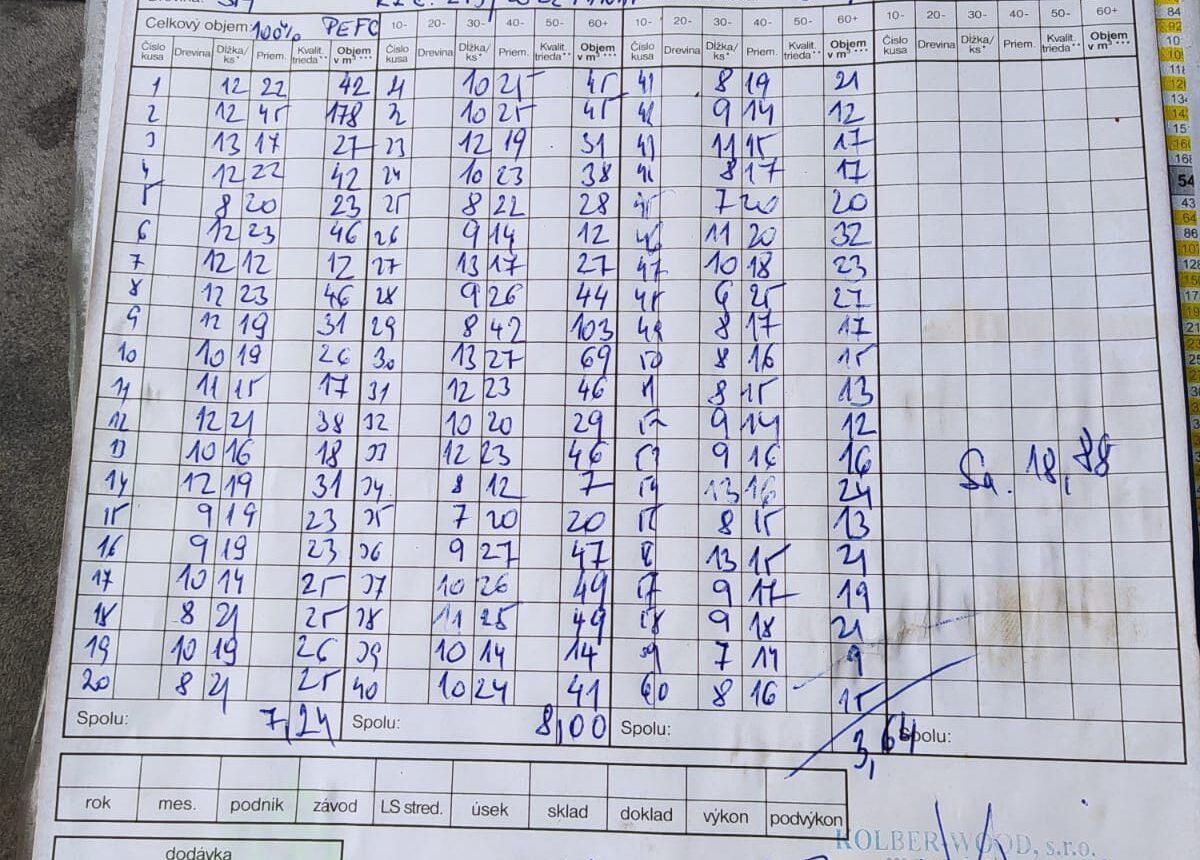 Celkový objem: 100% PEFC 10- 20- 30- 40- 50- 60+ 10- 20- 30- 40- 50- 60+ 10- 20- 30- 40- 50- 60+
Číslo kusa Drevina Dĺžka/ks* Priem. Kvalit. trieda** Objem v m³*** Číslo kusa Drevina Dĺžka/ks* Priem. Kvalit. trieda** Objem v m³*** Číslo kusa Drevina Dĺžka/ks* Priem. Kvalit. trieda** Objem v m³*** Číslo kusa Drevina Dĺžka/ks* Priem. Kvalit. trieda** Objem v m³***
1 12 22 42 21 10 25 45 41 8 19 21
2 12 45 178 22 10 25 45 42 9 14 12
3 13 17 27 23 12 19 31 43 11 15 17
4 12 22 42 24 10 23 38 44 8 17 17
5 8 20 23 25 8 22 28 45 7 20 20
6 12 23 46 26 9 14 12 46 11 20 32
7 12 12 12 27 13 17 27 47 10 18 23
8 12 23 46 28 9 26 44 48 25 27
9 12 19 31 29 8 42 103 49 8 17 17
10 10 19 26 30 13 27 69 50 8 16 15
11 11 15 17 31 12 23 46 51 8 15 13
12 12 21 38 32 10 20 29 52 9 14 12
13 10 16 18 33 12 23 46 53 9 16 16
14 12 19 31 34 8 12 7 54 13 16 24
15 9 19 23 35 7 20 20 55 8 15 13
16 9 19 23 36 9 27 47 56 13 15 21
17 10 14 25 37 10 26 49 57 9 17 19
18 8 21 25 38 11 25 49 58 9 18 21
19 10 19 26 39 10 14 14 59 7 14 9
20 8 21 25 40 10 24 41 60 8 16 15
Sa. 18,88
Spolu: 7,24 Spolu: 8,00 Spolu: 3,64 Spolu:
rok mes. podnik závod LS stred. úsek sklad doklad výkon podvýkon
KOLBER-WOOD, s.r.o.
dodávka